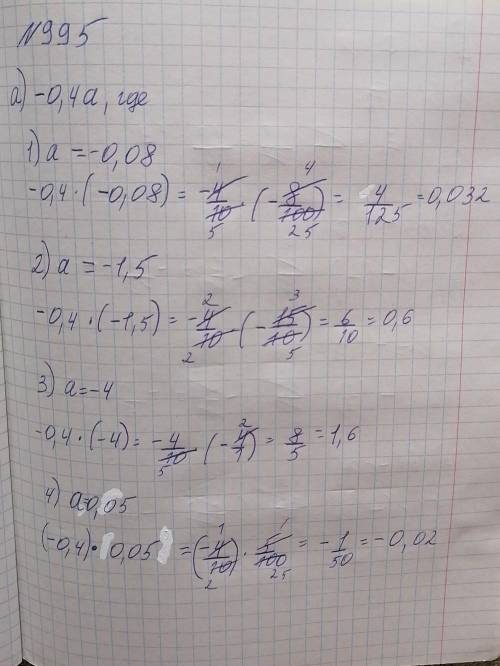 №995
а) -0,4а, где
1) а = -0,08
-0,4 · (-0,08) = -4/10 5 1 · (-8/100 4 25) = 4/125 = 0,032
2) а = -1,5
-0,4 · (-1,5) = -4/10 2 2 · (-15/10 3 5) = 6/10 = 0,6
3) а = -4
-0,4 · (-4) = -4/10 5 · (-4/1 2) = 8/5 = 1,6
4) а=0,05
(-0,4) · (0,05) = (-4/10 1 2) · 5/100 1 25 = -1/50 = -0,02